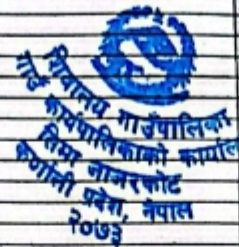 शिवालय गाउँपालिका
गाउँ कार्यपालिकाको कार्यालय
तिमा जाजरकोट
कर्णाली प्रदेश, नेपाल
२०७३